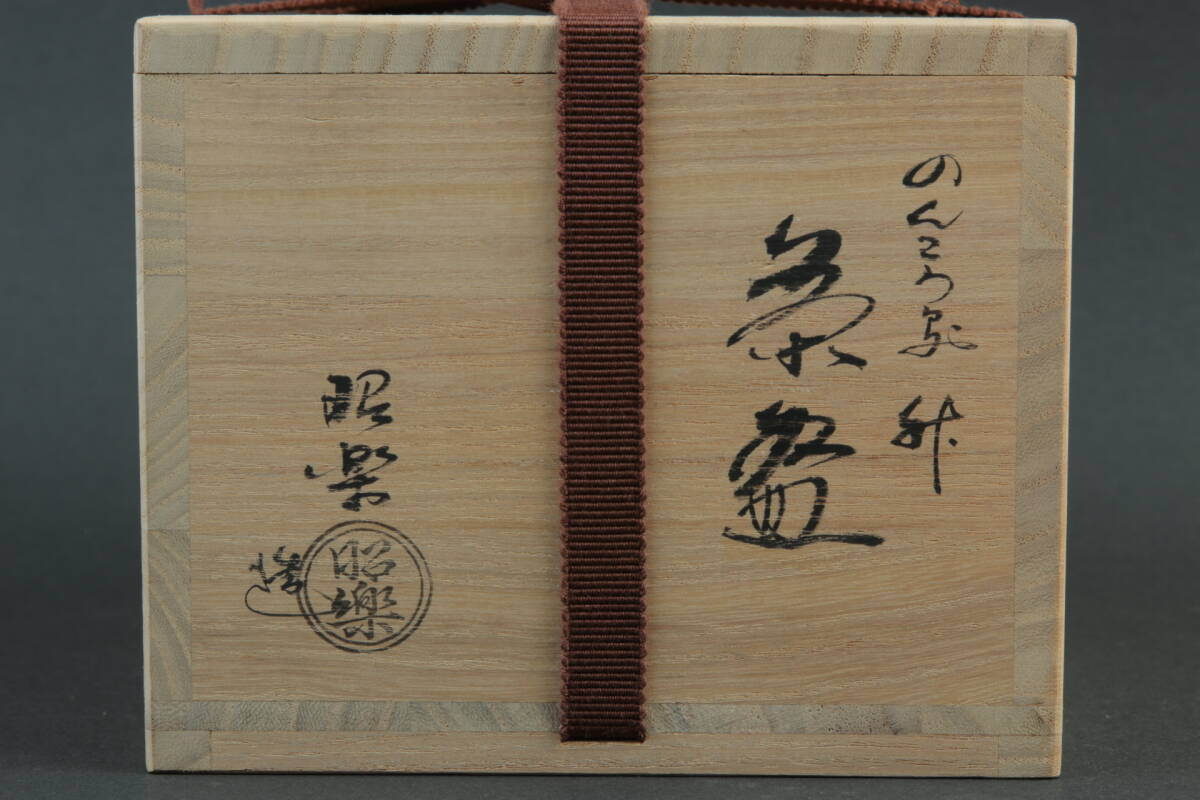 のんこう写 升
茶盌
昭楽
造
昭樂